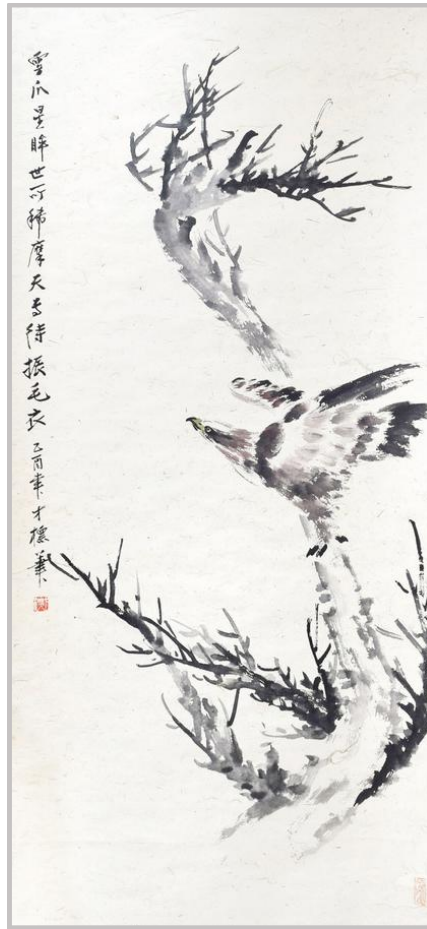 雪爪星眸世所稀摩天专待振毛衣 乙酉年才標筆